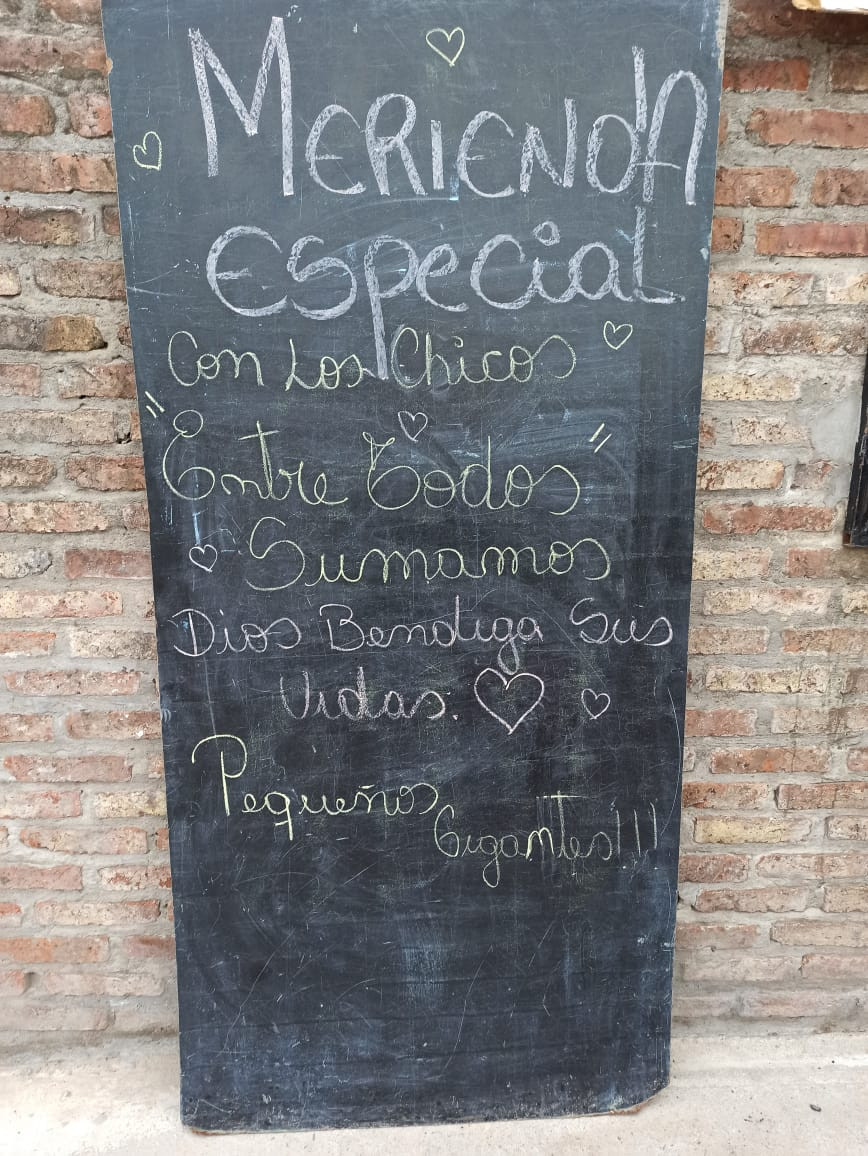 MERIENDA
Especial
Con Los Chicos
"Entre Todos"
Sumamos
Dios Bendiga Sus
Vidas.
Pequeños
Gigantes!!!